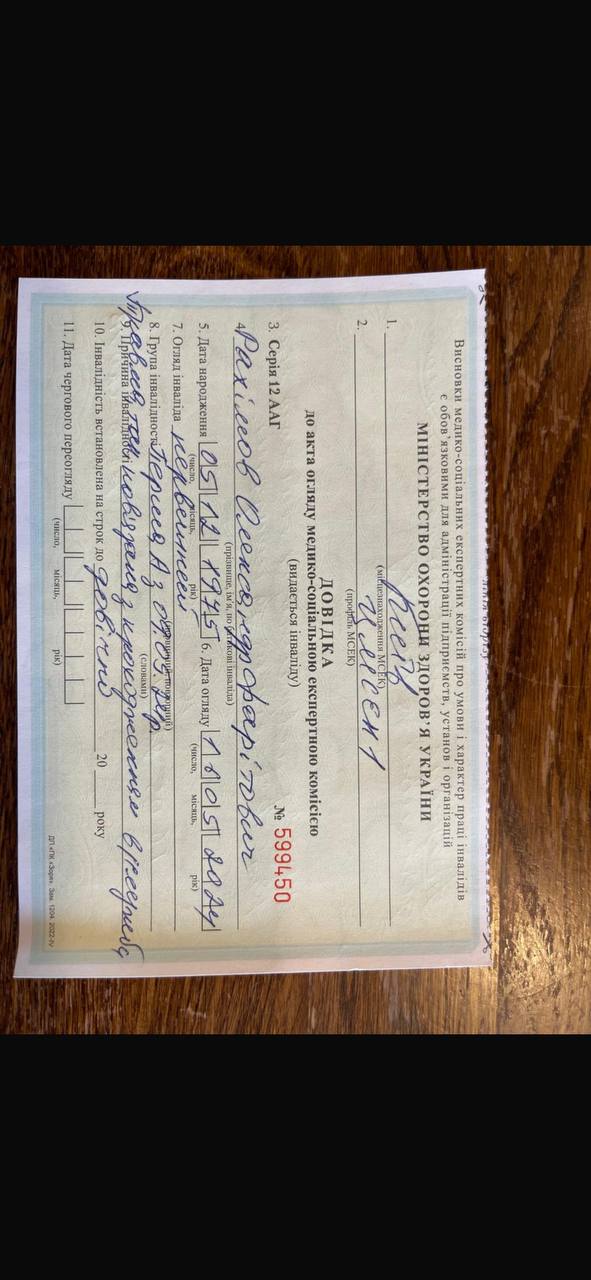 Висновки медико-соціальних експертних комісій про умови і характер праці інвалідів
є обов'язковими для адміністрації підприємств, установ і організацій
МІНІСТЕРСТВО ОХОРОНИ ЗДОРОВ'Я УКРАЇНИ
1. Київ
(місцезнаходження МСЕК)
2.
(профіль МСЕК)
ДОВІДКА
до акта огляду медико-соціальною експертною комісією
(видається інваліду)
3. Серія 12 ААГ № 599450
4. Рахімов Олександр Фарітович
(прізвище, ім'я, по батькові інваліда)
5. Дата народження 05 12 1975 6. Дата огляду 16 05 2024
(число, місяць, рік) (число, місяць, рік)
7. Огляд інваліда первинний
8. Група інвалідності перша А з 07.05.
(словами)
9. Причина інвалідності Травма, так, пов'язана з проходженням
10. Інвалідність встановлена на строк до довічно 20 року
11. Дата чергового переогляду
(число, місяць, рік)
ДП «ПК «Зоря». Зам. 1294. 2022-IV